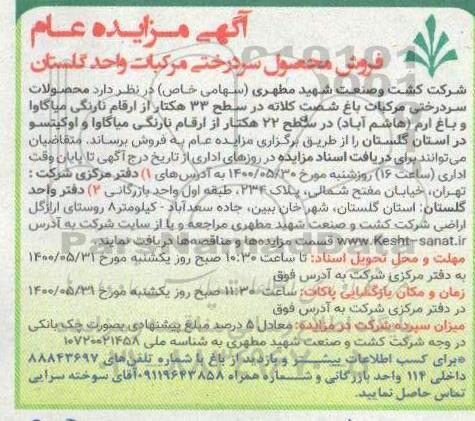 آگهی مزایده عام
فروش محصول سردرختی مرکبات واحد گلستان
شرکت کشت وصنعت شهید مطهری (سهامی خاص) در نظر دارد محصولات
سردرختی مرکبات باغ شصت کلاته در سطح ۳۳ هکتار از ارقام نارنگی میاگاوا
و باغ ارم (هاشم آباد) در سطح ۲۲ هکتار از ارقام نارنگی میاگاوا و اوکیتسو
در استان گلستان را از طریق برگزاری مزایده عام به فروش برساند. متقاضیان
می‌توانند برای دریافت اسناد مزایده در روزهای اداری از تاریخ درج آگهی تا پایان وقت
اداری (ساعت ۱۶) روزشنبه مورخ ۱۴۰۰/۰۵/۳۰ به آدرس‌های ۱) دفتر مرکزی شرکت :
تهران، خیابان مفتح شمالی، پلاک ۲۳۴، طبقه اول واحد بازرگانی ۲) دفتر واحد
گلستان: استان گلستان، شهر خان ببین، جاده سعدآباد - کیلومتر۸ روستای ارازگل
اراضی شرکت کشت و صنعت شهید مطهری مراجعه و یا از سایت شرکت به آدرس
www.Kesht-sanat.ir قسمت مزایده‌ها و مناقصه‌ها دریافت نمایند
مهلت و محل تحویل اسناد: تا ساعت ۱۰:۳۰ صبح روز یکشنبه مورخ ۱۴۰۰/۰۵/۳۱
به دفتر مرکزی شرکت به آدرس فوق
زمان و مکان بازگشایی پاکات: ساعت ۱۱:۳۰ صبح روز یکشنبه مورخ ۱۴۰۰/۰۵/۳۱
در دفتر مرکزی شرکت به آدرس فوق
میزان سپرده شرکت در مزایده: معادل ۵ درصد مبلغ پیشنهادی بصورت چک بانکی
در وجه شرکت کشت و صنعت شهید مطهری به شناسه ملی ۱۰۷۲۰۰۲۱۴۵۸
برای کسب اطلاعات بیشتر و بازدید از باغ با شماره تلفن‌های ۸۸۸۴۳۶۹۷
داخلی ۱۱۴ واحد بازرگانی و شماره همراه ۰۹۱۱۹۶۴۳۸۵۸آقای سوخته سرایی
تماس حاصل نمایید.